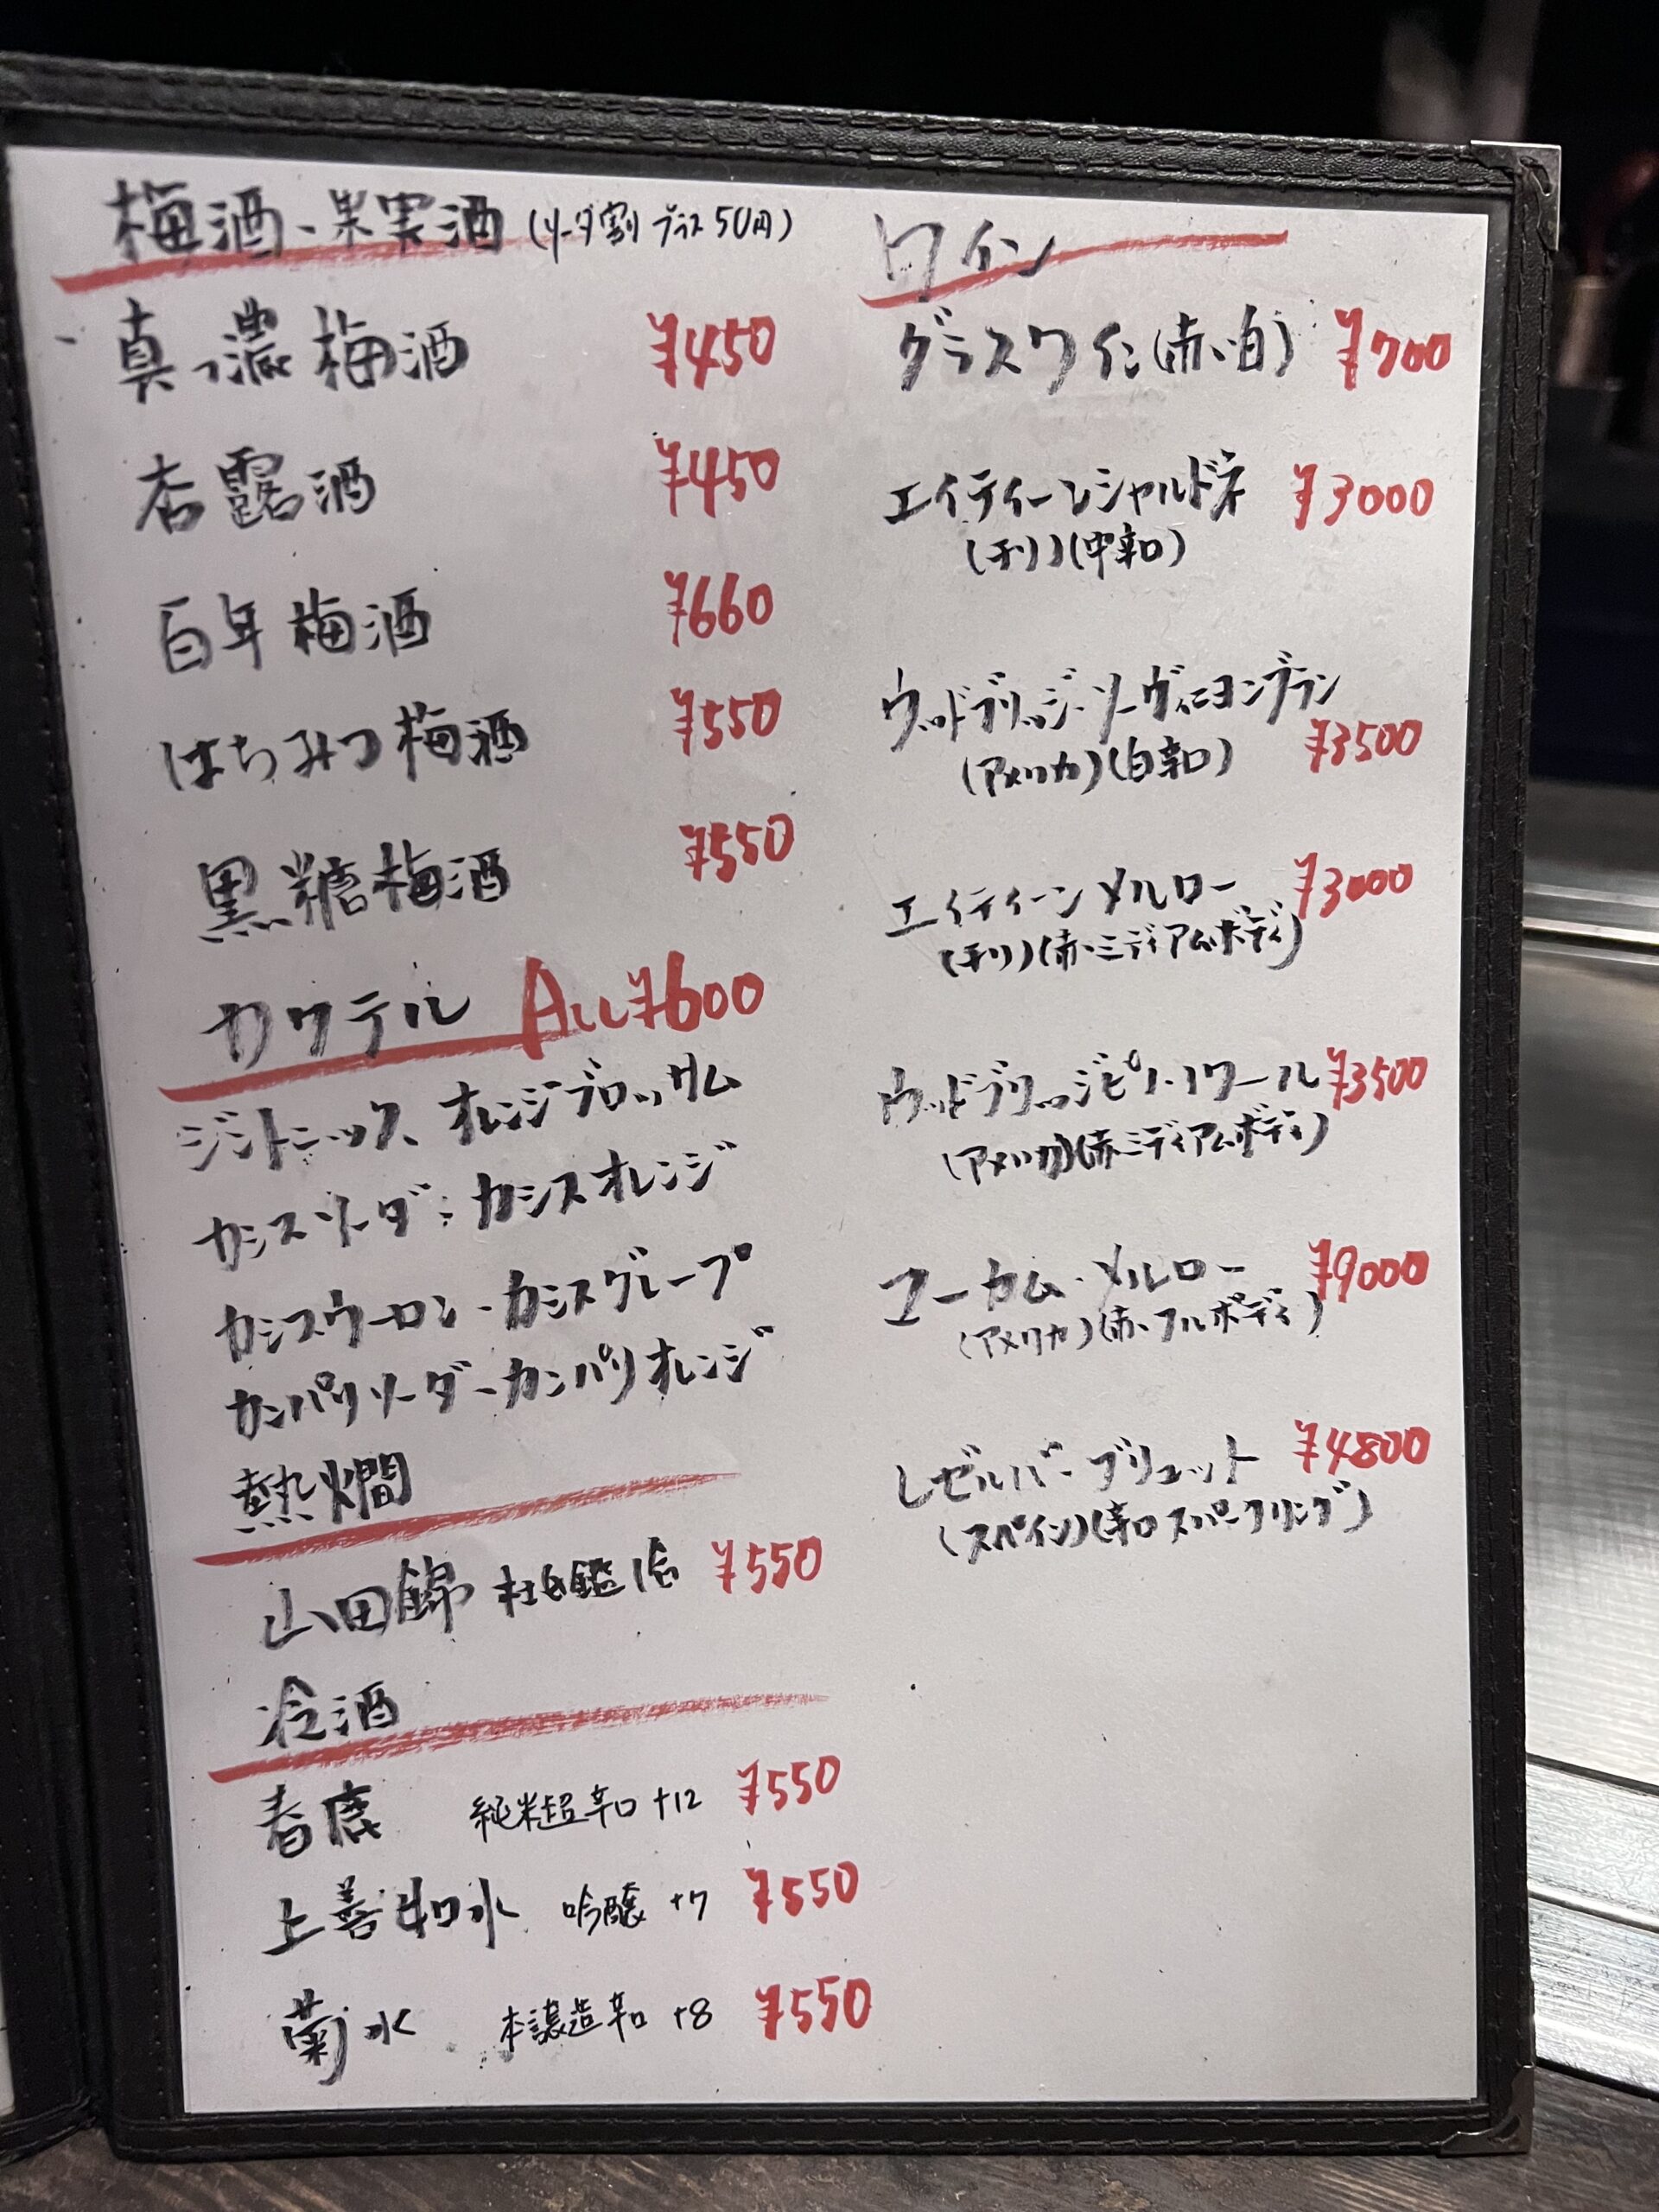 梅酒、果実酒 (ソーダ割 プラス50円)
真っ濃梅酒 ¥450
杏露酒 ¥450
百年梅酒 ¥660
はちみつ梅酒 ¥550
黒糖梅酒 ¥550
カクテル All¥600
ジントニック、オレンジブロッサム
カシスソーダ、カシスオレンジ
カシスウーロン、カシスグレープ
カンパリソーダ、カンパリオレンジ
熱燗
山田錦 ¥550
冷酒
春鹿 純米超辛口 +12 ¥550
上善如水 吟醸 +7 ¥550
菊水 本譲造辛口 +8 ¥550
ワイン
グラスワイン(赤、白) ¥700
エイティーンシャルドネ ¥3000
(チリ)(中辛口)
ウッドブリッジ・ソーヴィニヨンブラン
(アメリカ)(白辛口) ¥3500
エイティーンメルロー ¥3000
(チリ)(赤、ミディアムボディ)
ウッドブリッジピノ・ノワール ¥3500
(アメリカ)(赤ミディアムボディ)
ユーカム・メルロー ¥9000
(アメリカ)(赤、フルボディ)
レゼルバ・ブリュット ¥4800
(スペイン)(辛口スパークリング)